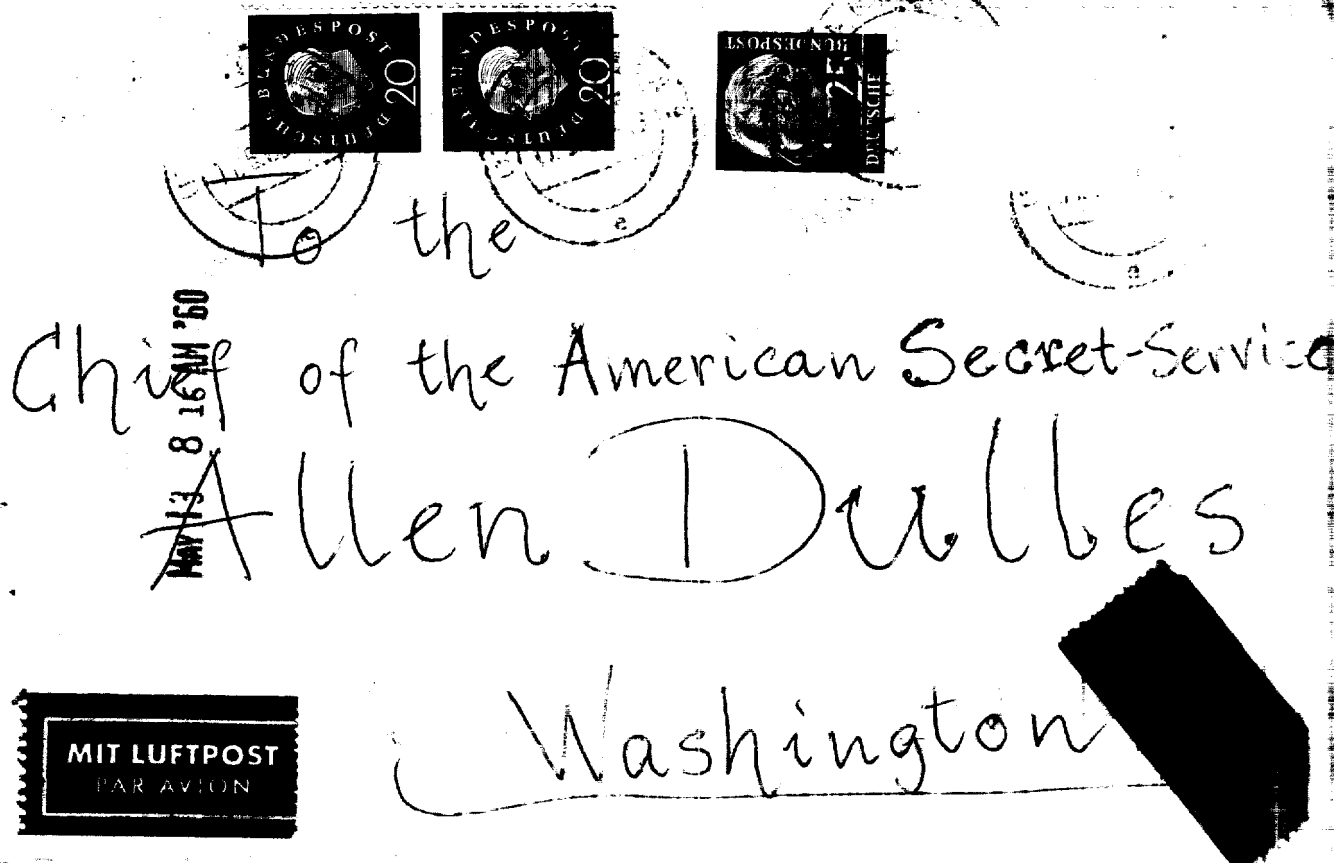 DEUTSCHE BUNDESPOST 20
DEUTSCHE BUNDESPOST 20
DEUTSCHE BUNDESPOST 25
To the
e
e
a
Chief of the American Secret-Service
Allen Dulles
MAY 13 8 16 AM '60
Washington
MIT LUFTPOST
PAR AVION